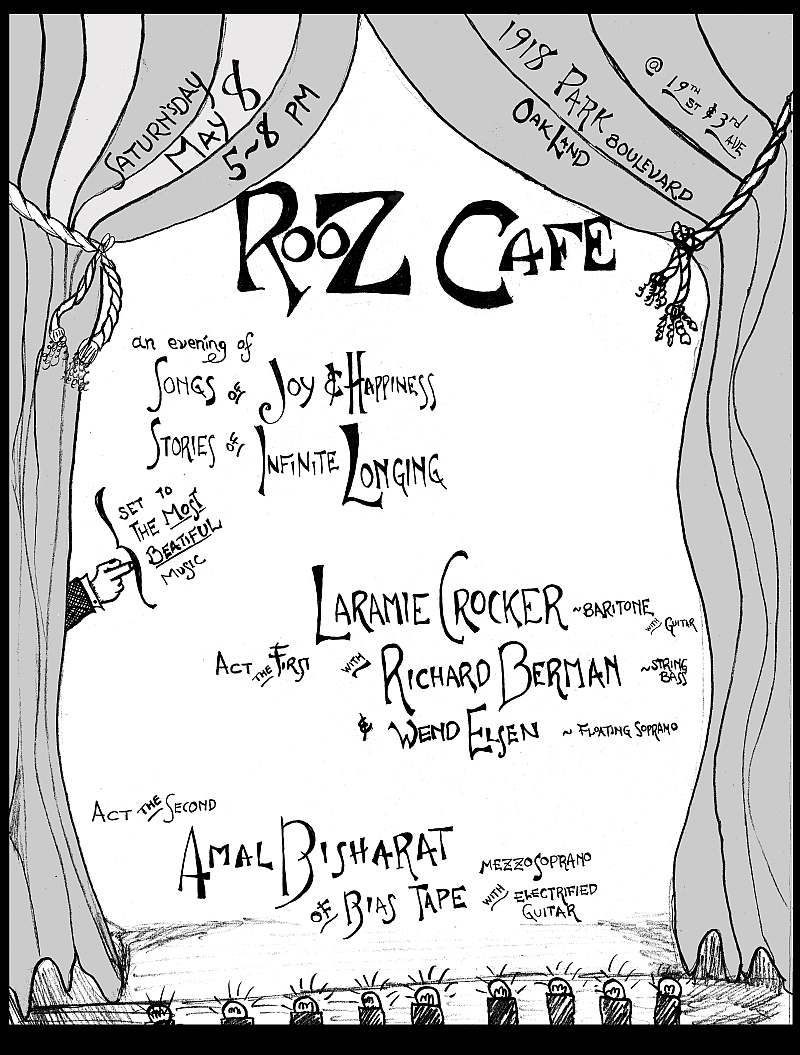 SATURN'SDAY
MAY 8
5~8 PM
1918 PARK BOULEVARD
OAKLAND
@ 19TH ST & 3rd AVE
ROOZ CAFE
an evening of
SONGS OF JOY & HAPPINESS
STORIES OF INFINITE LONGING
SET TO
THE MOST
BEATIFUL
MUSIC
LARAMIE CROCKER ~BARITONE
WITH GUITAR
ACT THE FIRST WITH RICHARD BERMAN ~STRING
BASS
& WEND ELSEN ~ FLOATING SOPRANO
ACT THE SECOND
AMAL BISHARAT MEZZO SOPRANO
OF BIAS TAPE WITH ELECTRIFIED
GUITAR